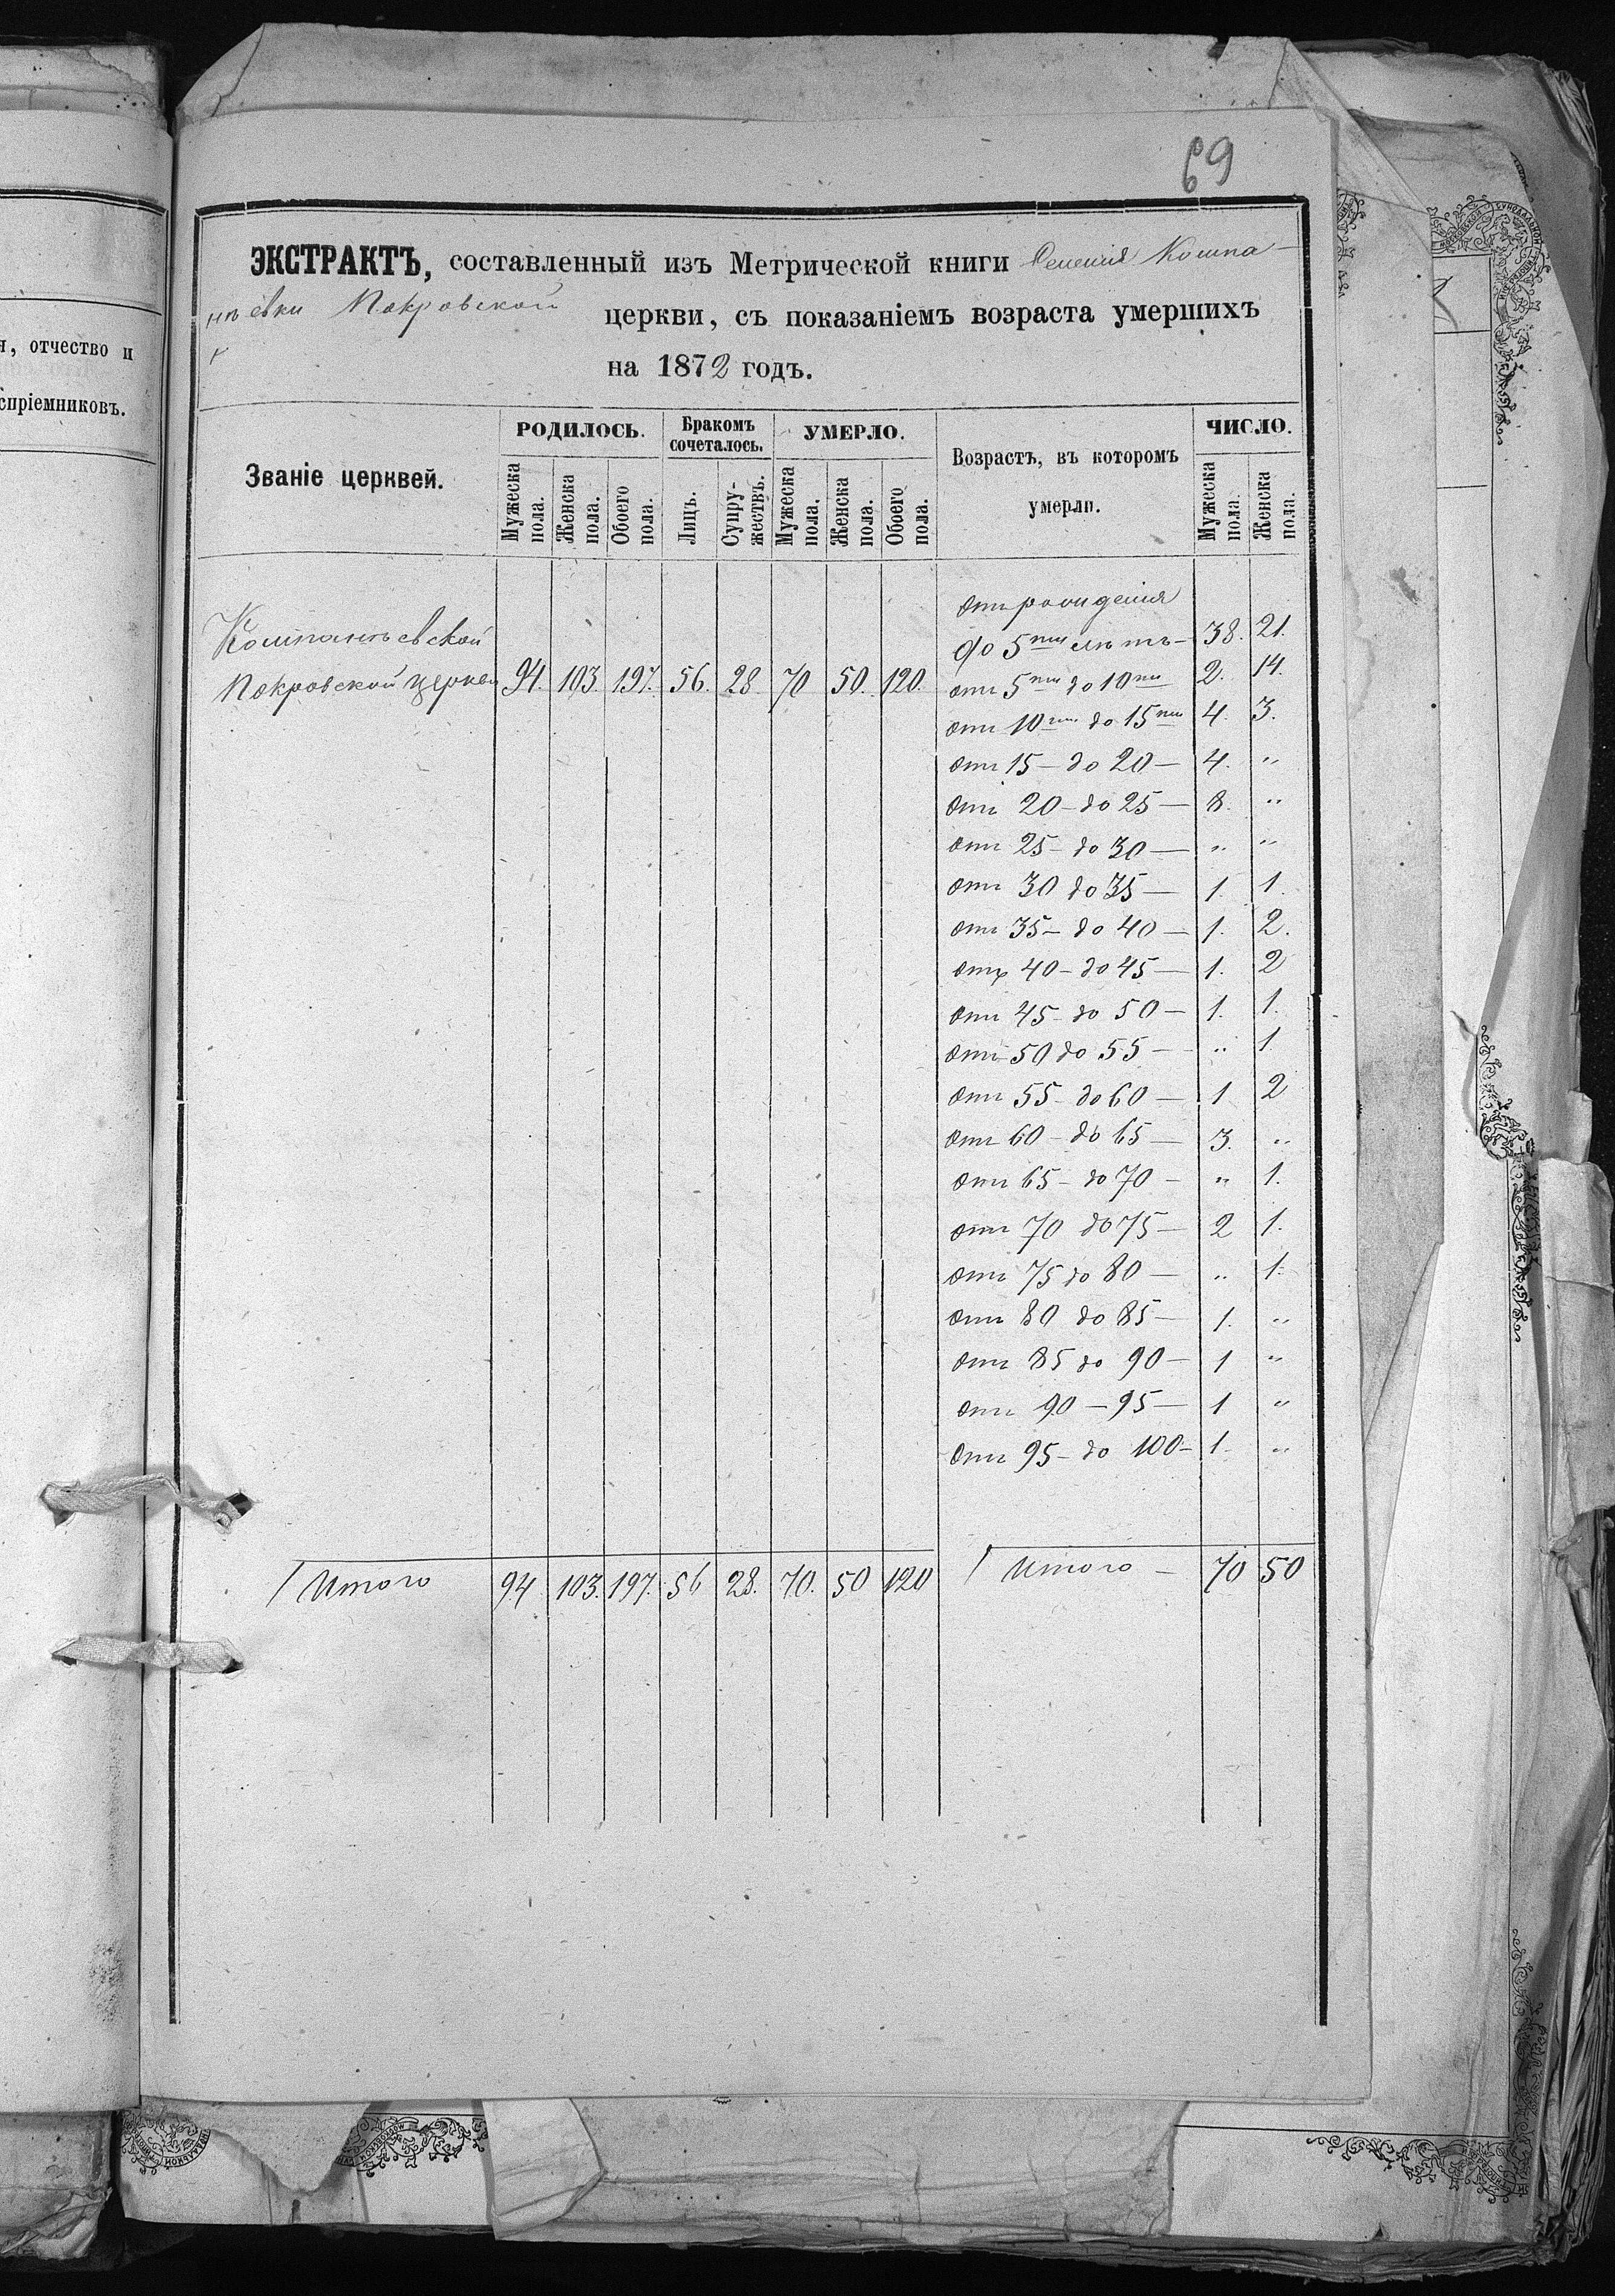 69
ЭКСТРАКТЪ, составленный изъ Метрической книги Селенія Компа-
нѣевки Покровской церкви, съ показаніемъ возраста умершихъ
на 1872 годъ.
я, отчество и
спріемниковъ.
Званіе церквей. РОДИЛОСЬ. Бракомъ сочеталось. УМЕРЛО. Возрастъ, въ которомъ умерли. ЧИСЛО.
Мужеска пола. Женска пола. Обоего пола. Лицъ. Супружествъ. Мужеска пола. Женска пола. Обоего пола. Мужеска пола. Женска пола.
отъ рожденія
Компанѣевской до 5ти лѣтъ — 38. 21.
Покровской церкви 94. 103. 197. 56. 28. 70 50. 120. отъ 5ти до 10ти 2. 14.
отъ 10ти до 15ти 4. 3.
отъ 15 — до 20 — 4. "
отъ 20 — до 25 — 8. "
отъ 25 — до 30 — " "
отъ 30 до 35 — 1. 1.
отъ 35 — до 40 — 1. 2.
отъ 40 — до 45 — 1. 2
отъ 45 — до 50 — 1. 1.
отъ 50 до 55 — " 1
отъ 55 — до 60 — 1 2
отъ 60 — до 65 — 3. "
отъ 65 — до 70 — " 1.
отъ 70 до 75 — 2 1.
отъ 75 до 80 — " 1.
отъ 80 до 85 — 1. "
отъ 85 до 90 — 1 "
отъ 90 — 95 — 1 "
отъ 95 — до 100 — 1. "
Итого 94 103. 197. 56 28. 70. 50 120 Итого — 70 50